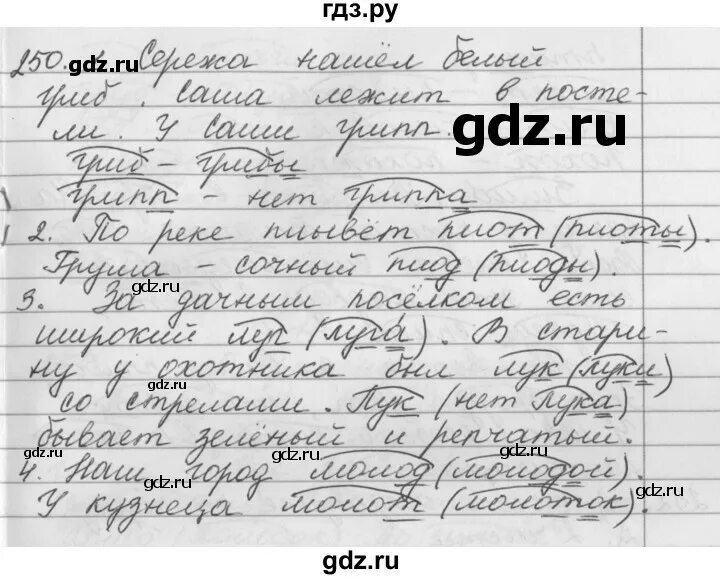 гдз.ру
250. 1. Сережа нашёл белый
гриб. Саша лежит в посте-
ли. У Саши грипп.
gdz.ru
гриб - грибы
gdz.ru
gdz.ru
грипп - нет гриппа
2. По реке плывёт плот (плоты).
Груша - сочный плод (плоды).
gdz.ru
gdz.ru
3. За дачным посёлком есть
широкий луг (луга́). В стари-
ну у охотника был лук (луки)
gdz.ru
gdz.ru
со стрелами. Лук (нет лука)
бывает зелёный и репчатый.
4. Наш город молод (молодой).
gdz.ru
gdz.ru
У кузнеца молот (молоток).
gdz.ru